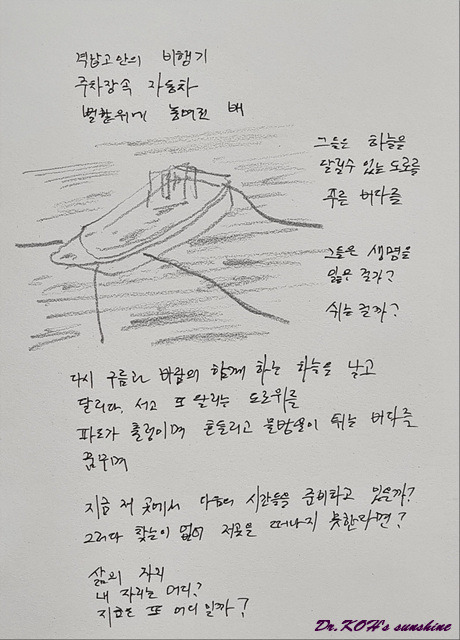 격납고 안의 비행기
주차장 속 자동차
뻘밭 위에 놓여진 배
그들은 하늘을
달릴수 있는 도로를
푸른 바다를
그들은 생명을
잃은 걸까?
쉬는 걸까?
다시 구름과 바람과 함께 하는 하늘을 날고
달리다, 서고 또 달리는 도로위를
파도가 출렁이며 흔들리고 물방울이 튀는 바다를
꿈꾸며
지금 저 곳에서 다음의 시간들을 준비하고 있을까?
그러다 찾는이 없어 저곳을 떠나지 못한다면?
삶의 자리
내 자리는 어디?
지금은 또 어디일까?
Dr.KOH's sunshine